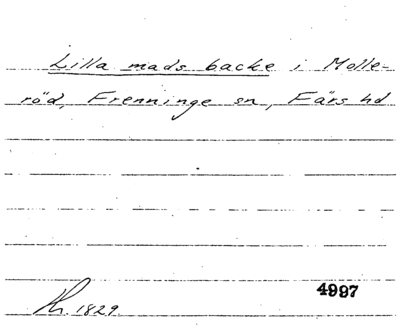 Lilla mads backe i Molle-
röd, Frenninge sn, Färs hd
4997
1829.